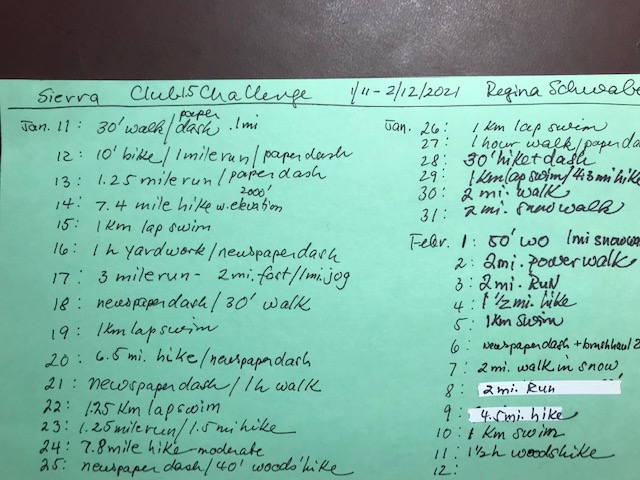 Sierra Club 15 Challenge 1/11-2/12/2021 Regina Schwabe
Jan. 11: 30' walk/paper dash .1mi
12: 10' hike/1 mile run/paper dash
13: 1.25 mile run/paper dash
14: 7.4 mile hike w. 2000' elevation
15: 1 km lap swim
16: 1 h yardwork/newspaper dash
17: 3 mile run - 2 mi. fast/1 mi. jog
18: newspaper dash/30' walk
19: 1 km lap swim
20: 6.5 mi. hike/newspaper dash
21: newspaper dash/1 h walk
22: 1.25 km lap swim
23: 1.25 mile run/1.5 mi hike
24: 7.8 mile hike - moderate
25: newspaper dash/40' woods' hike
Jan. 26: 1 km lap swim
27: 1 hour walk/paper da
28: 30' hike + dash
29: 1 km lap swim/4.3 mi hike
30: 2 mi. walk
31: 2 mi. snow walk
Febr. 1: 50' WO 1mi snowwa
2: 2 mi. power walk
3: 2 mi. Run
4: 1 1/2 mi. hike
5: 1 km swim
6: newspaper dash + brush haul 2
7: 2 mi. walk in snow
8: 2 mi. Run
9: 4.5 mi. hike
10: 1 km swim
11: 1 1/2 h woods hike
12: